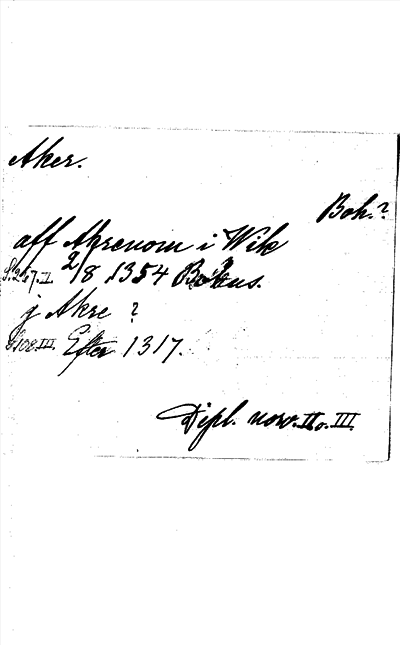 Aker.
Boh.?
aff Akrenom i Wik
S. 247. II 2/8 1354 Bohus.
j Akre ?
S. 108 III. Efter 1317.
Dipl. norv. II o. III.